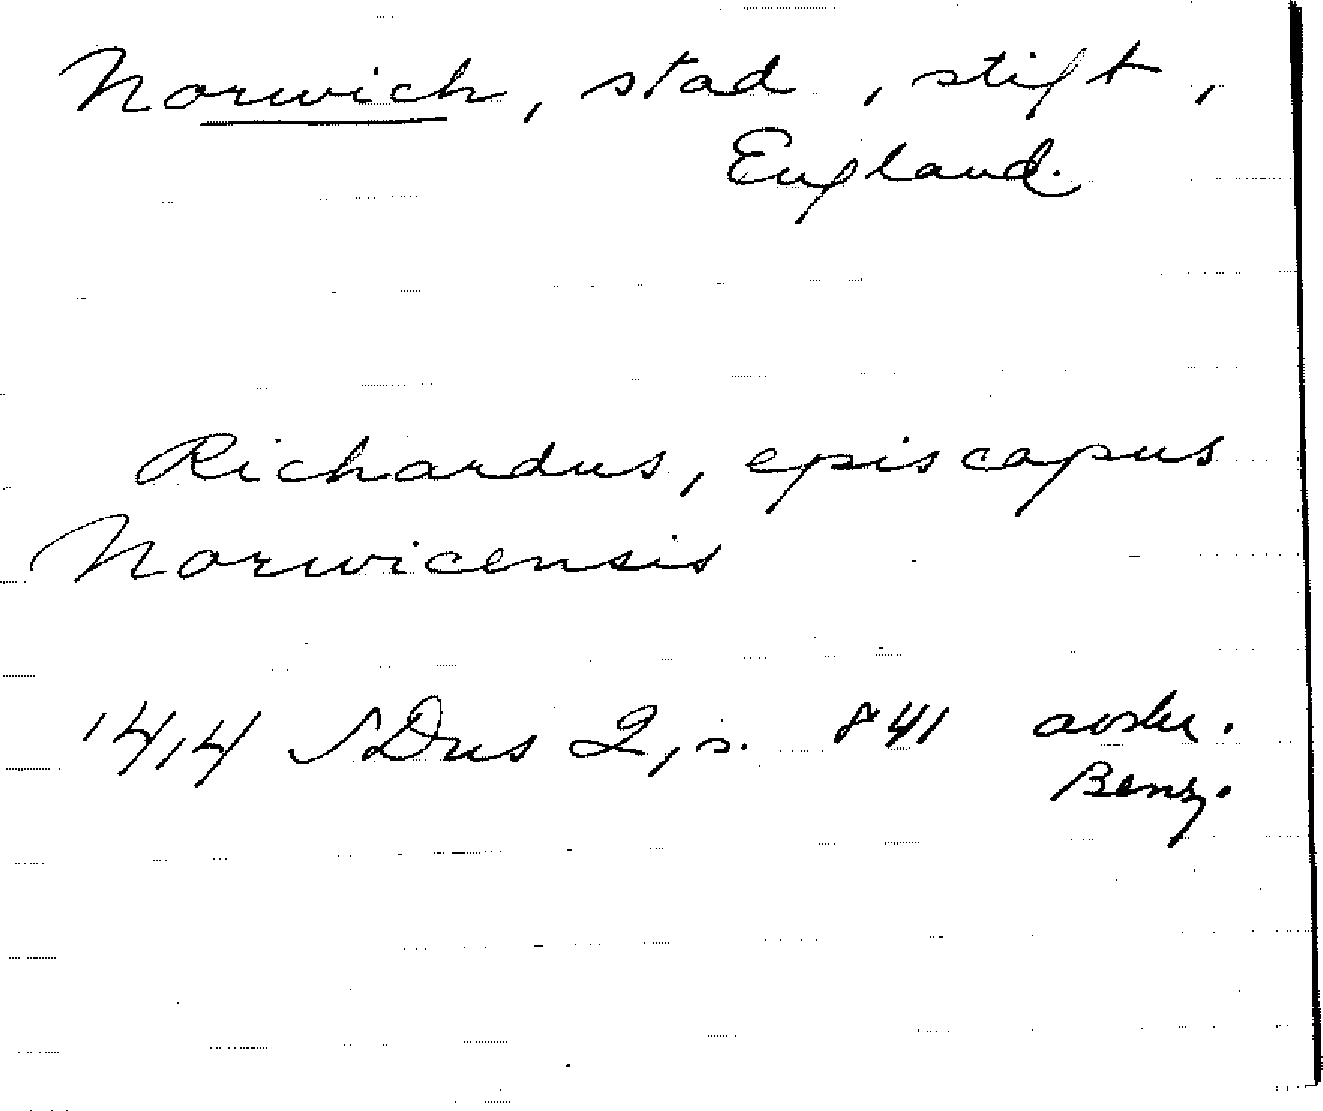 Norwich, stad, stift,
England.
Richardus, episcopus
Norwicensis
1414 SDns 2, s. 841 avskr.
Benz.